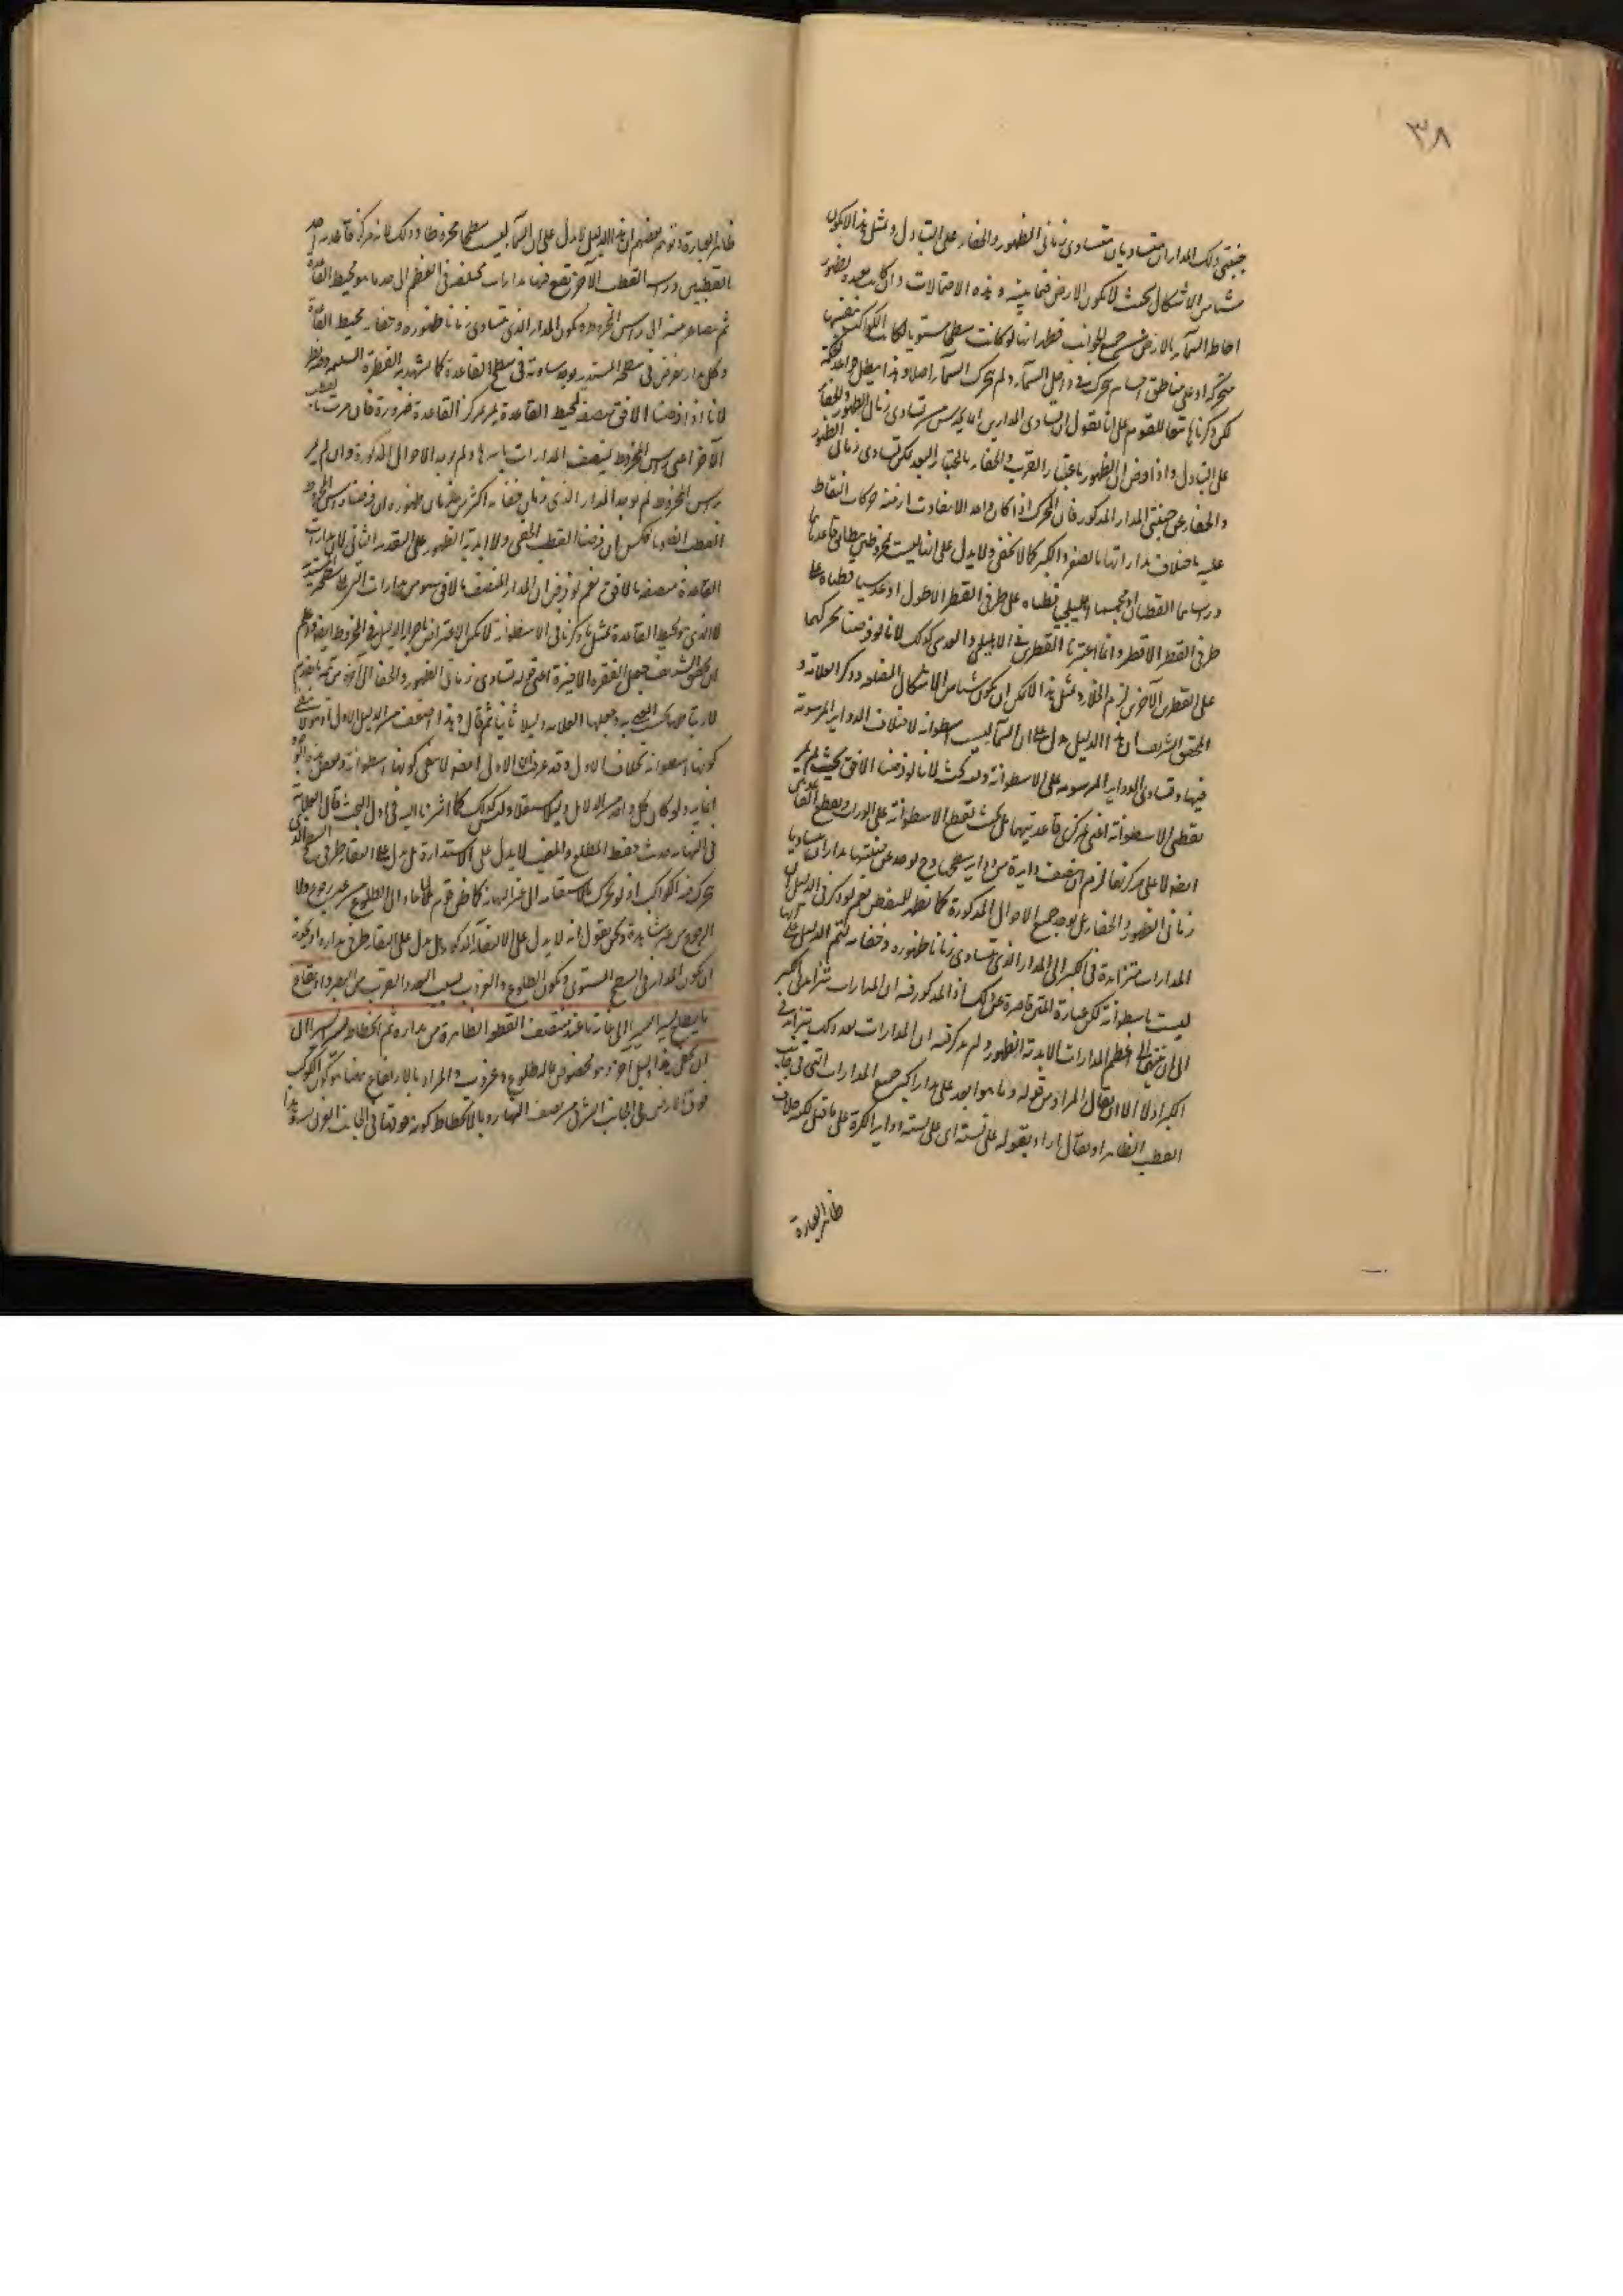 ٣٨
جنبتي ذلك المداران متساويان متساوى زمانى الظهور والخفاء على التبادل ومثل هذا لا يكون
شيئا من الاشكال بحيث لا يكون الارض فيما بينه وهذه الاحتمالات وان كانت بعيدة
احاطة السماء بالارض من جميع الجوانب فظهر انها لو كانت سطحا مستويا لكانت الكواكب
متحركة على مناطق اجسام تتحرك في داخل السماء ولم تتحرك السماء اصلا وهذا
لكن ذكرناها تبعا للقوم على انا نقول ان تساوى المدارين انما من تساوى زمان الظهور والخفاء
على التبادل واذا فرض ان الظهور باعتبار القرب والخفاء باعتبار البعد لم يكن تساوى زمانى الظهور
والخفاء على جنبتي المدار المذكور فان المتحرك اذا كان واحدا لا يتفاوت ازمنة حركات النقاط
عليه باختلاف مداراتها بالصغر والكبر كما لا يخفى ولا يدل على انها ليست مخروطين قاعدتاهما
وراساهما القطبان او مجسما اهليلجيا قطباه على طرفي القطر الاطول او عدسيا قطباه على
طرفي القطر الاقصر وانما اعتبرنا القطرين في الاهليلجي والعدسي كذلك لانا لو فرضنا تحركهما
على القطرين الآخرين لزم الخلاء ومثل هذا لا يمكن ان يكون شيئا من الاشكال المضلعة وذكر العلامة و
المحقق الشريف ان هذا الدليل يدل على ان السماء ليست اسطوانة لاختلاف الدواير المرسومة
فيها وتساوى الدواير المرسومة على الاسطوانة وفيه بحث لانا لو فرضنا الافق بحيث لم يمر
بقطبي الاسطوانة اعنى مركزى قاعدتيها بل بحيث تقطع الاسطوانة على الوراب ويقطع
ايضا لا على مركزها لزم ان ينصف دايرة من دواير سطحها و يوجد عن جنبتيها مداران متساويا
زمانى الظهور والخفاء بل يوجد جميع الاحوال المذكورة كما يظهر للمتفحص نعم لو ذكر في الدليل ان
المدارات متزايدة في الكبر الى المدار الذى يتساوى زمانا ظهوره وخفائه لتم الدليل على انها
ليست باسطوانة لكن عبارة المتن قاصرة عن ذلك اذ المذكور فيه ان المدارات تتزايد في الكبر
الى ان تنتهى الى اعظم المدارات الابدية الظهور ولم يذكر فيه ان المدارات بعد ذلك تتزايد في
الكبر او لا الا ان يقال المراد من قوله وما هو ابعد على مدار اكبر جميع المدارات التي في جانب
القطب الظاهر او يقال اراد بقوله على نسبة اى على نسبة دواير الكرة على ما قيل لكنه خلاف
ظاهر العبارة
ظاهر العبارة وتوهم بعضهم ان هذا الدليل لا يدل على ان السماء ليست سطحا مخروطا وذلك لانه مركز قاعدته احد
القطبين وراسه القطب الآخر تقع فيها مدارات مختلفة في العظم الى حد ما هو محيط القاعدة
ثم يتصاغر منه الى راس المخروط ويكون المدار الذى يتساوى زمانا ظهوره وخفائه محيط القاعدة
وكل مدار يفرض في سطحه المستدير يوجد مساويه في سطح القاعدة كما يشهد به الفطرة السليمة وفيه نظر
لانا اذا فرضنا الافق منصفا لمحيط القاعدة يمر بمركز القاعدة ضرورة فان مرت بالقطب
الآخر اعنى راس المخروط تنصف المدارات باسرها ولم يوجد الاحوال المذكورة وان لم يمر
براس المخروط لم يوجد المدار الذى زمان خفائه اكثر من زمان ظهوره ان فرضنا راس المخروط
القطب الظاهر وبالعكس ان فرضنا القطب الخفى ولا ابدية الظهور على التقدير الثانى لان مدارات
القاعدة منصفة بالافق نعم لو فرض ان المدار المنصف بالافق هو من مدارات التي على سطحه المستدير
لا الذى هو محيط القاعدة بمثل ما ذكرنا في الاسطوانة لامكن الاعتراض باجراء الدليل في المخروط ايضا واعلم
ان المحقق الشريف جعل الفقرة الاخيرة اعنى قوله تساوى زمانى الظهور والخفاء الى آخره من تتمة ما تقدم
وجعلها العلامة دليلا ثانيا ثم قال وهذا اضعف من الدليل الاول اذ هو لا ينفى
كونها اسطوانة بخلاف الاول وقد عرفت ان الاول ايضا لا ينفى كونها اسطوانة
انما يرد لو كان كل واحد من الدلايل دليلا مستقلا وليس كذلك كما اشرنا اليه في اول البحث قال العلامة
في النهاية حديث فقط المطلع والمغيب لا يدل على الاستدارة بل يدل على التقاء طرفي السطح الذى
يتحرك فيه الكواكب اذ لو تحرك بالاستقامة الى غير النهاية كما ظن قوم لما عاد الى الطلوع من غير رجوع ولا
الرجوع من غير مشاهدة ونحن نقول انه لا يدل على الالتقاء المذكور بل يدل على التقاء طرفي مداره او يجوز
ان يكون المدار في السطح المستوى ويكون الطلوع والغروب بسبب البعد والقرب من البصر وارتفاع
ما يطلع يسيرا يسيرا الى غاية ما عند منتصف القطعة الظاهرة من مداره ثم انحطاطه يسيرا الى
ان يغيب هذا دليل آخر وهو مخصوص بما له طلوع وغروب والمراد بالارتفاع ههنا هو كون الكوكب
فوق الارض في الجانب الشرقى من نصف النهار وبالانحطاط كونه فوقها في الجانب الغربى